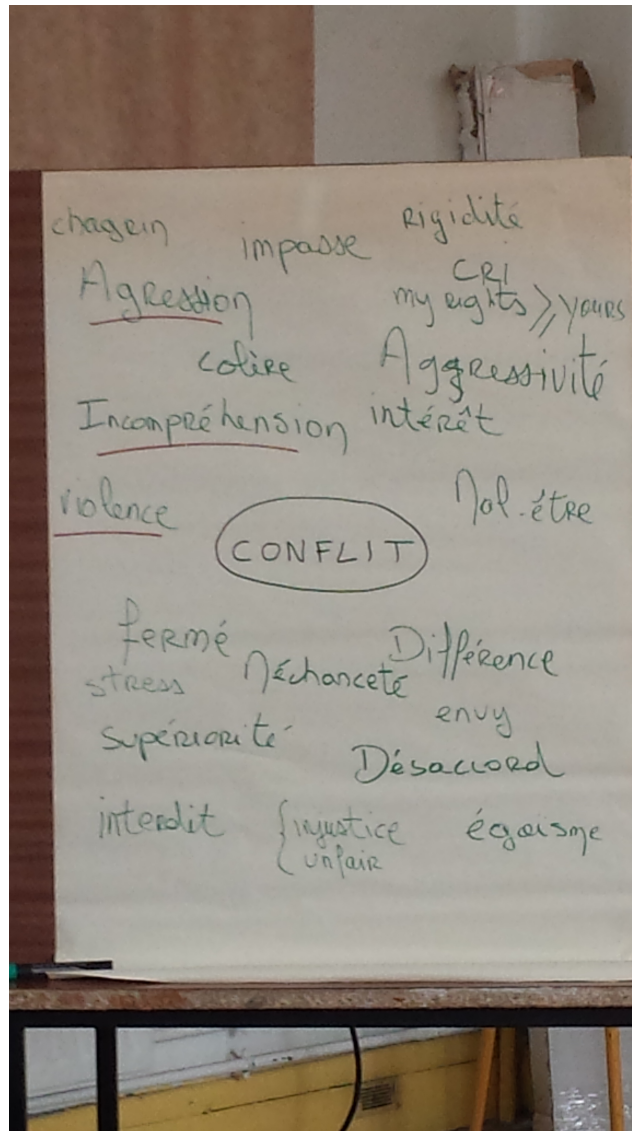 chagrin
impasse
Rigidité
Agression
CRI
my rights ⩾ yours
colère
Aggressivité
Incompréhension
intérêt
violence
Mal-être
CONFLIT
fermé
Différence
stress
Méchanceté
envy
supériorité
Désaccord
interdit
{injustice
{unfair
égoïsme